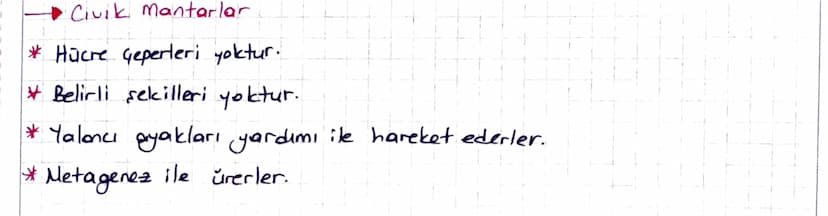 → Cıvık Mantarlar
* Hücre çeperleri yoktur.
* Belirli şekilleri yoktur.
* Yalancı ayakları yardımı ile hareket ederler.
* Metagenez ile ürerler.